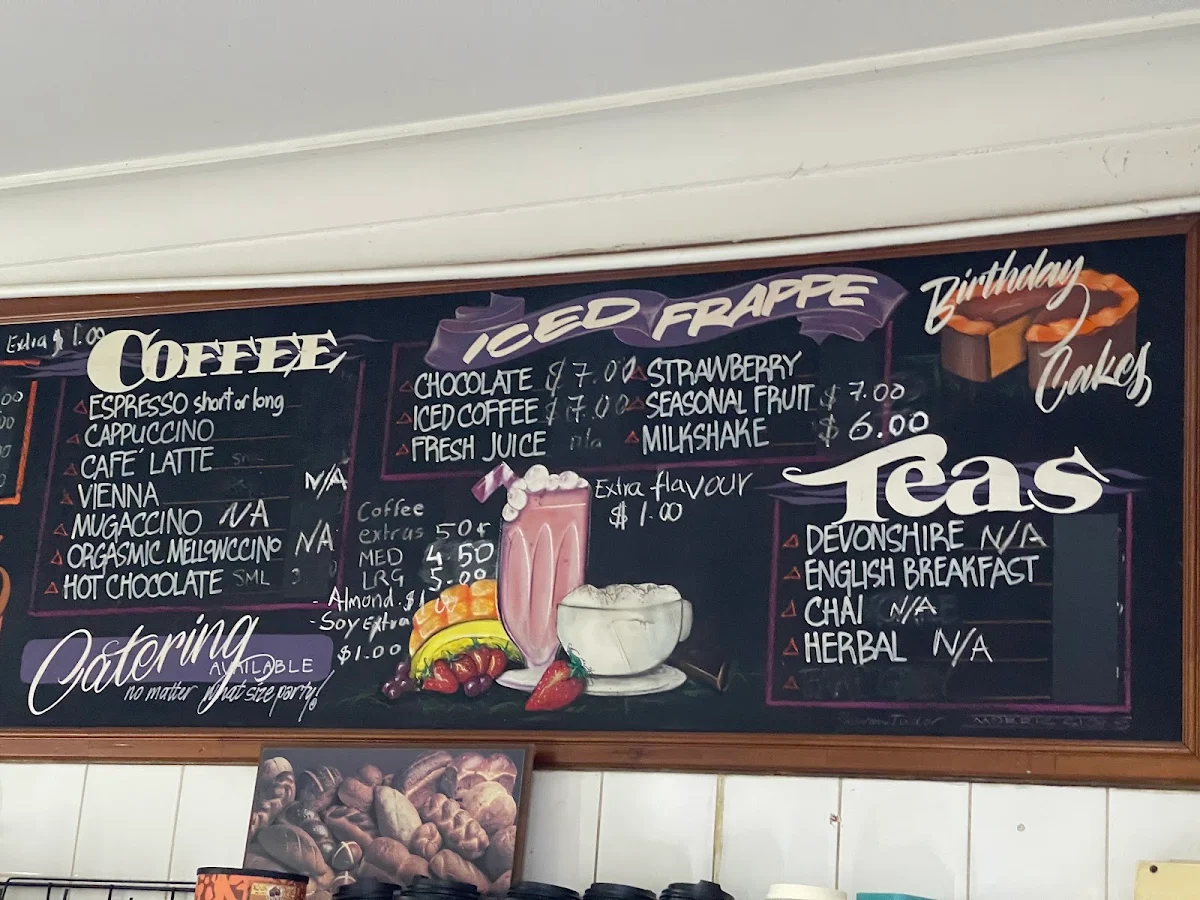 Extra $ 1.00
COFFEE
ESPRESSO short or long
CAPPUCCINO
CAFE´ LATTE
VIENNA N/A
MUGACCINO N/A
ORGASMIC MELLOWCCINO N/A
HOT CHOCOLATE SML
Catering
AVAILABLE
no matter what size party!
Coffee
extras 50¢
MED 4.50
LRG 5.00
- Almond $1.00
- Soy Extra
$1.00
ICED FRAPPE
CHOCOLATE $ 7.00
ICED COFFEE $ 7.00
FRESH JUICE n/a
STRAWBERRY
SEASONAL FRUIT $ 7.00
MILKSHAKE $ 6.00
Extra flavour
$ 1.00
Birthday
Cakes
Teas
DEVONSHIRE N/A
ENGLISH BREAKFAST
CHAI N/A
HERBAL N/A